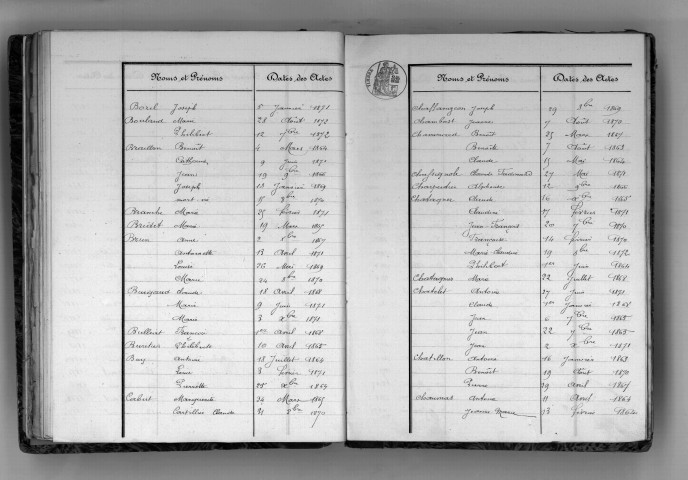 Noms et Prénoms Dates des Actes
Borel Joseph 8 Janvier 1871
Marie 28 Août 1872
Philibert 12 7bre 1872
Braillon Benoît 4 Mars 1864
Catherine 9 Juin
Jean 19 9bre
Joseph 13 Janvier 1869
mort né 15 1870
Branche Marie 25 Février 1871
Marie 19 Mars 1867
Brun Anne 2 8bre 1867
Antoinette 13 Avril 1871
Louise 26 Mai 1869
Marie 24 8bre 1870
Claude 18 Avril 1868
Marie 9 Juin 1871
Marie 3 Xbre 1871
Avril 1868
10 Avril 1865
Buy Antoine 18 Juillet 1864
8 Février 1871
Pierrette 25 Xbre 1864
Cabut Marguerite 24 Mars 1865
Claude 31 8bre 1870
Noms et Prénoms Dates des Actes
Chaffangeon Joseph 29 1869
Chambost Jeanne 7 Août 1870
Benoît 25 Mars 1867
Benoîte 7 Août 1863
Claude 15 Mai 1864
Claude Ferdinand 27 Mai 1871
Charpentier Alphonse 12
Chatagner Claude 16 1865
Claudine 17 Février 1871
Jean François 20 7bre 1870
Françoise 14 Février 1870
Marie Claudine 19 8bre 1872
Philibert 1er Juin 1864
Marie 22 Juillet 1868
Chatelet Antoine 27 Juin 1871
Claude 1er Janvier 1868
Jean 6 7bre 1865
Jean 22 7bre 1865
Jean 2 Xbre 1871
Chatillon Antoine 16 Janvier 1863
Benoît 19 Août 1870
Pierre 29 Avril 1867
Chaumas Antoine 11 Avril 1864
Jeanne Marie 13 Février 1864